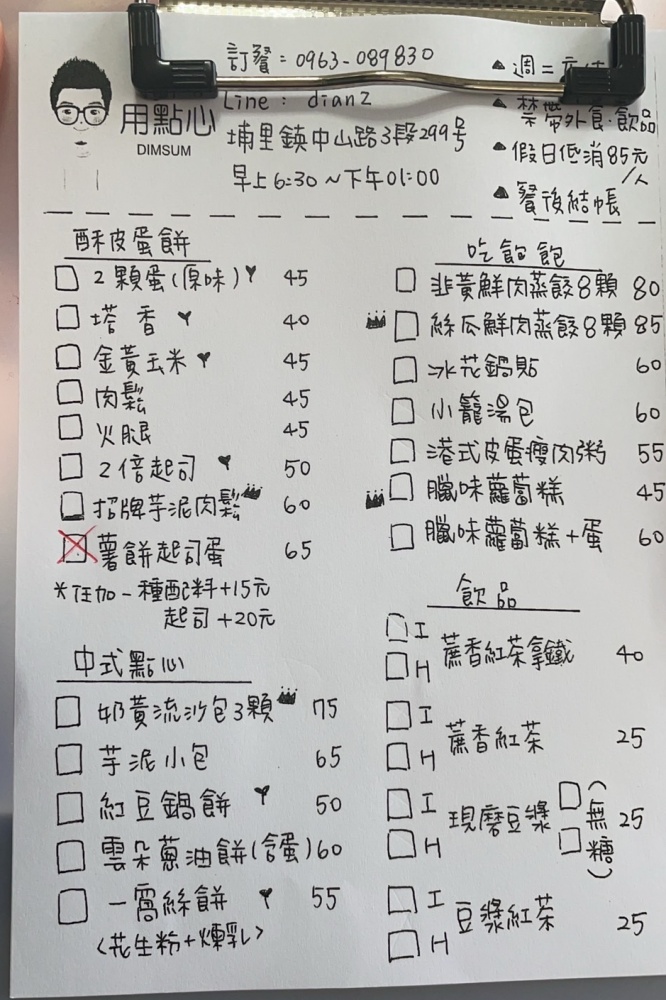 訂餐：0963-089830
用點心
DIMSUM
Line： dian2
埔里鎮中山路3段299号
早上6:30～下午01:00
▲週二
▲禁帶外食.飲品
▲假日低消85元/人
▲餐後結帳
酥皮蛋餅
2顆蛋(原味) 45
塔香 40
金黃玉米 45
肉鬆 45
火腿 45
2倍起司 50
招牌芋泥肉鬆 60
薯餅起司蛋 65
*任加一種配料+15元
起司+20元
中式點心
奶黃流沙包3顆 75
芋泥小包 65
紅豆鍋餅 50
雲朵蔥油餅(含蛋) 60
一窩絲餅 55
<花生粉+煉乳>
吃飽飽
韭黃鮮肉蒸餃8顆 80
絲瓜鮮肉蒸餃8顆 85
冰花鍋貼 60
小籠湯包 60
港式皮蛋瘦肉粥 55
臘味蘿蔔糕 45
臘味蘿蔔糕+蛋 60
飲品
I
H
蔗香紅茶拿鐵 40
I
H
蔗香紅茶 25
I
H
現磨豆漿 (無糖) 25
I
H
豆漿紅茶 25